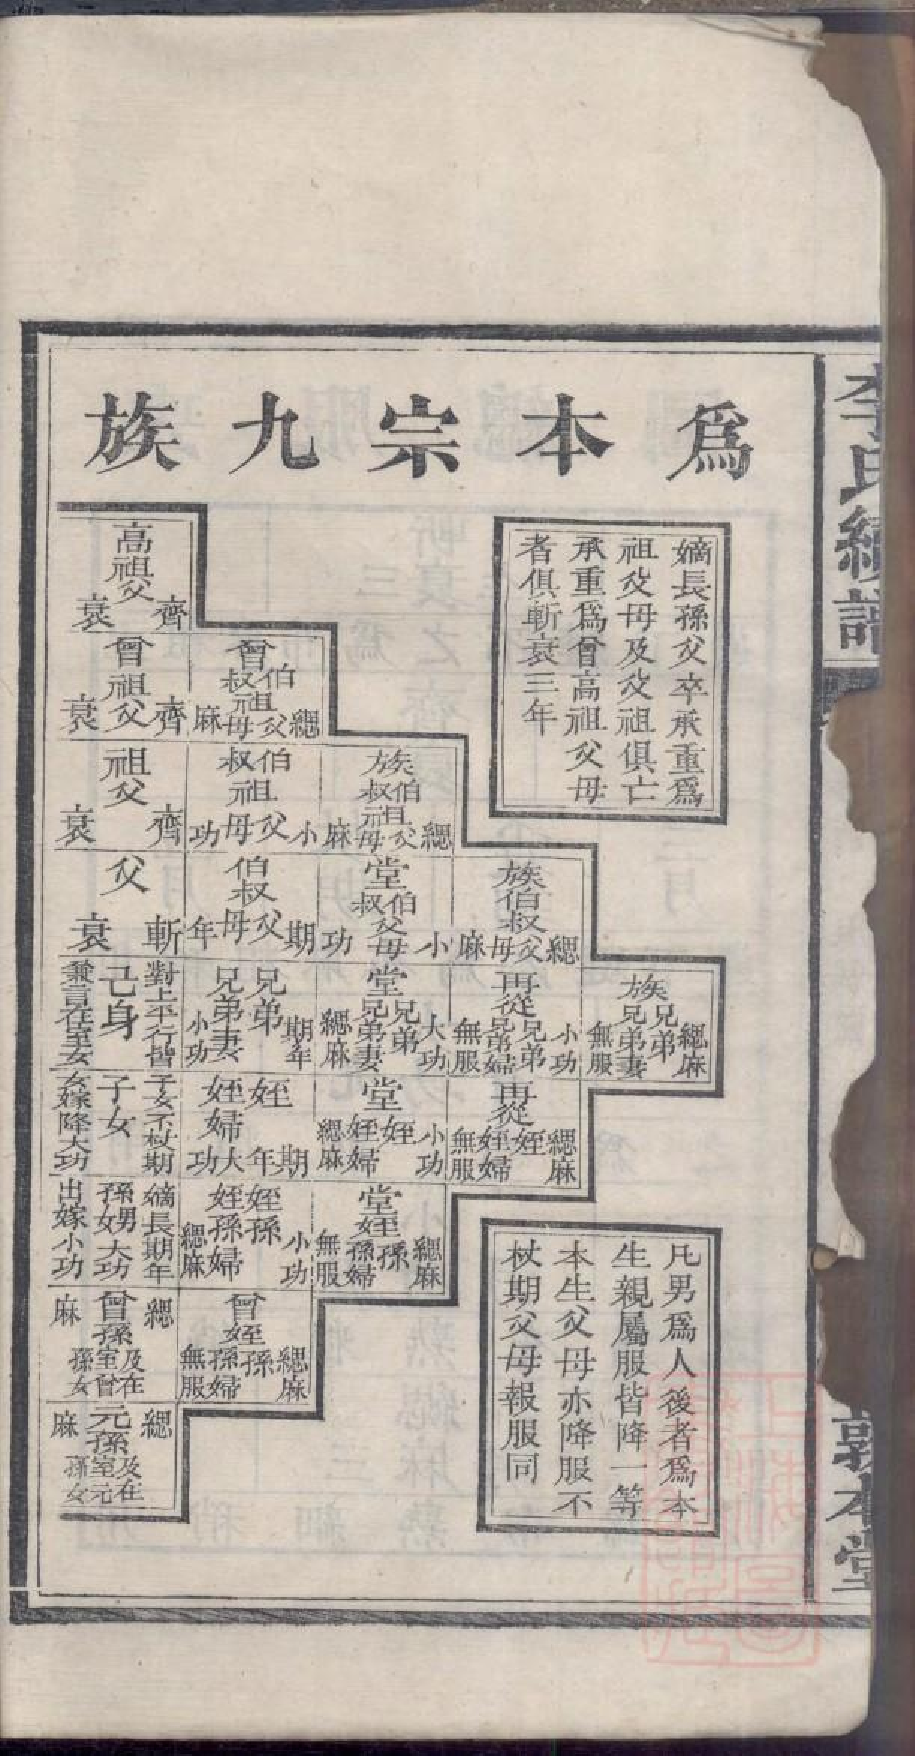 為本宗九族
嫡長孫父卒承重為
祖父母及父祖俱亡
承重為曾高祖父母
者俱斬衰三年
高祖父
齊衰
曾祖父
齊衰
曾伯叔祖父母
緦麻
祖父
齊衰
伯叔祖父母
小功
族伯叔祖父母
緦麻
父
斬衰
伯叔父母
期年
堂伯叔父母
小功
族伯叔父母
緦麻
對上平行皆
己身
兼言在室女
兄弟
期年
兄弟妻
小功
堂兄弟
大功
兄弟妻
緦麻
再從兄弟
小功
兄弟婦
無服
族兄弟
緦麻
兄弟妻
無服
子女不杖期
子女
女嫁降大功
姪
期年
姪婦
大功
堂姪
小功
姪婦
緦麻
再從姪
緦麻
姪婦
無服
嫡長期年
孫男女大功
出嫁小功
姪孫
小功
姪孫婦
緦麻
堂姪孫
緦麻
孫婦
無服
曾孫
緦麻
及在室曾孫女
曾姪孫
緦麻
孫婦
無服
元孫
緦麻
及在室元孫女
凡男為人後者為本
生親屬服皆降一等
本生父母亦降服不
杖期父母報服同
李氏續譜
敦本堂